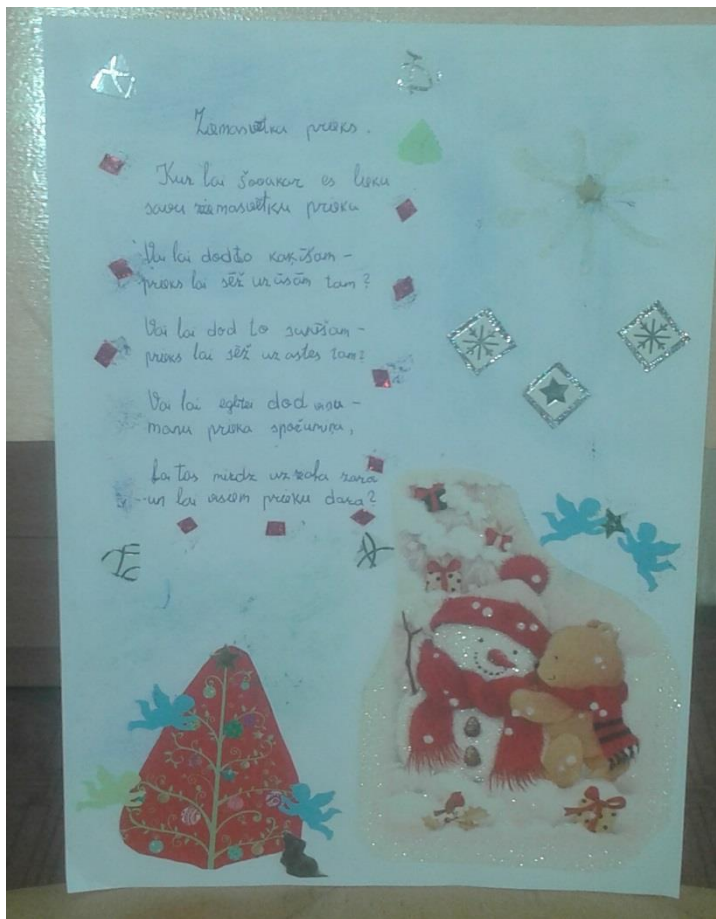 Ziemasvētku prieks.
Kur lai šovakar es lieku
savu ziemasvētku prieku
Vai lai dod to kaķīšam –
prieks lai sēž uz ūsām tam?
Vai lai dod to sunīšam –
prieks lai sēž uz astes tam?
Vai lai eglītei dod visu –
manu prieka spožumiņu,
Lai tas mirdz uz zaļa zara
un lai visiem prieku dara?